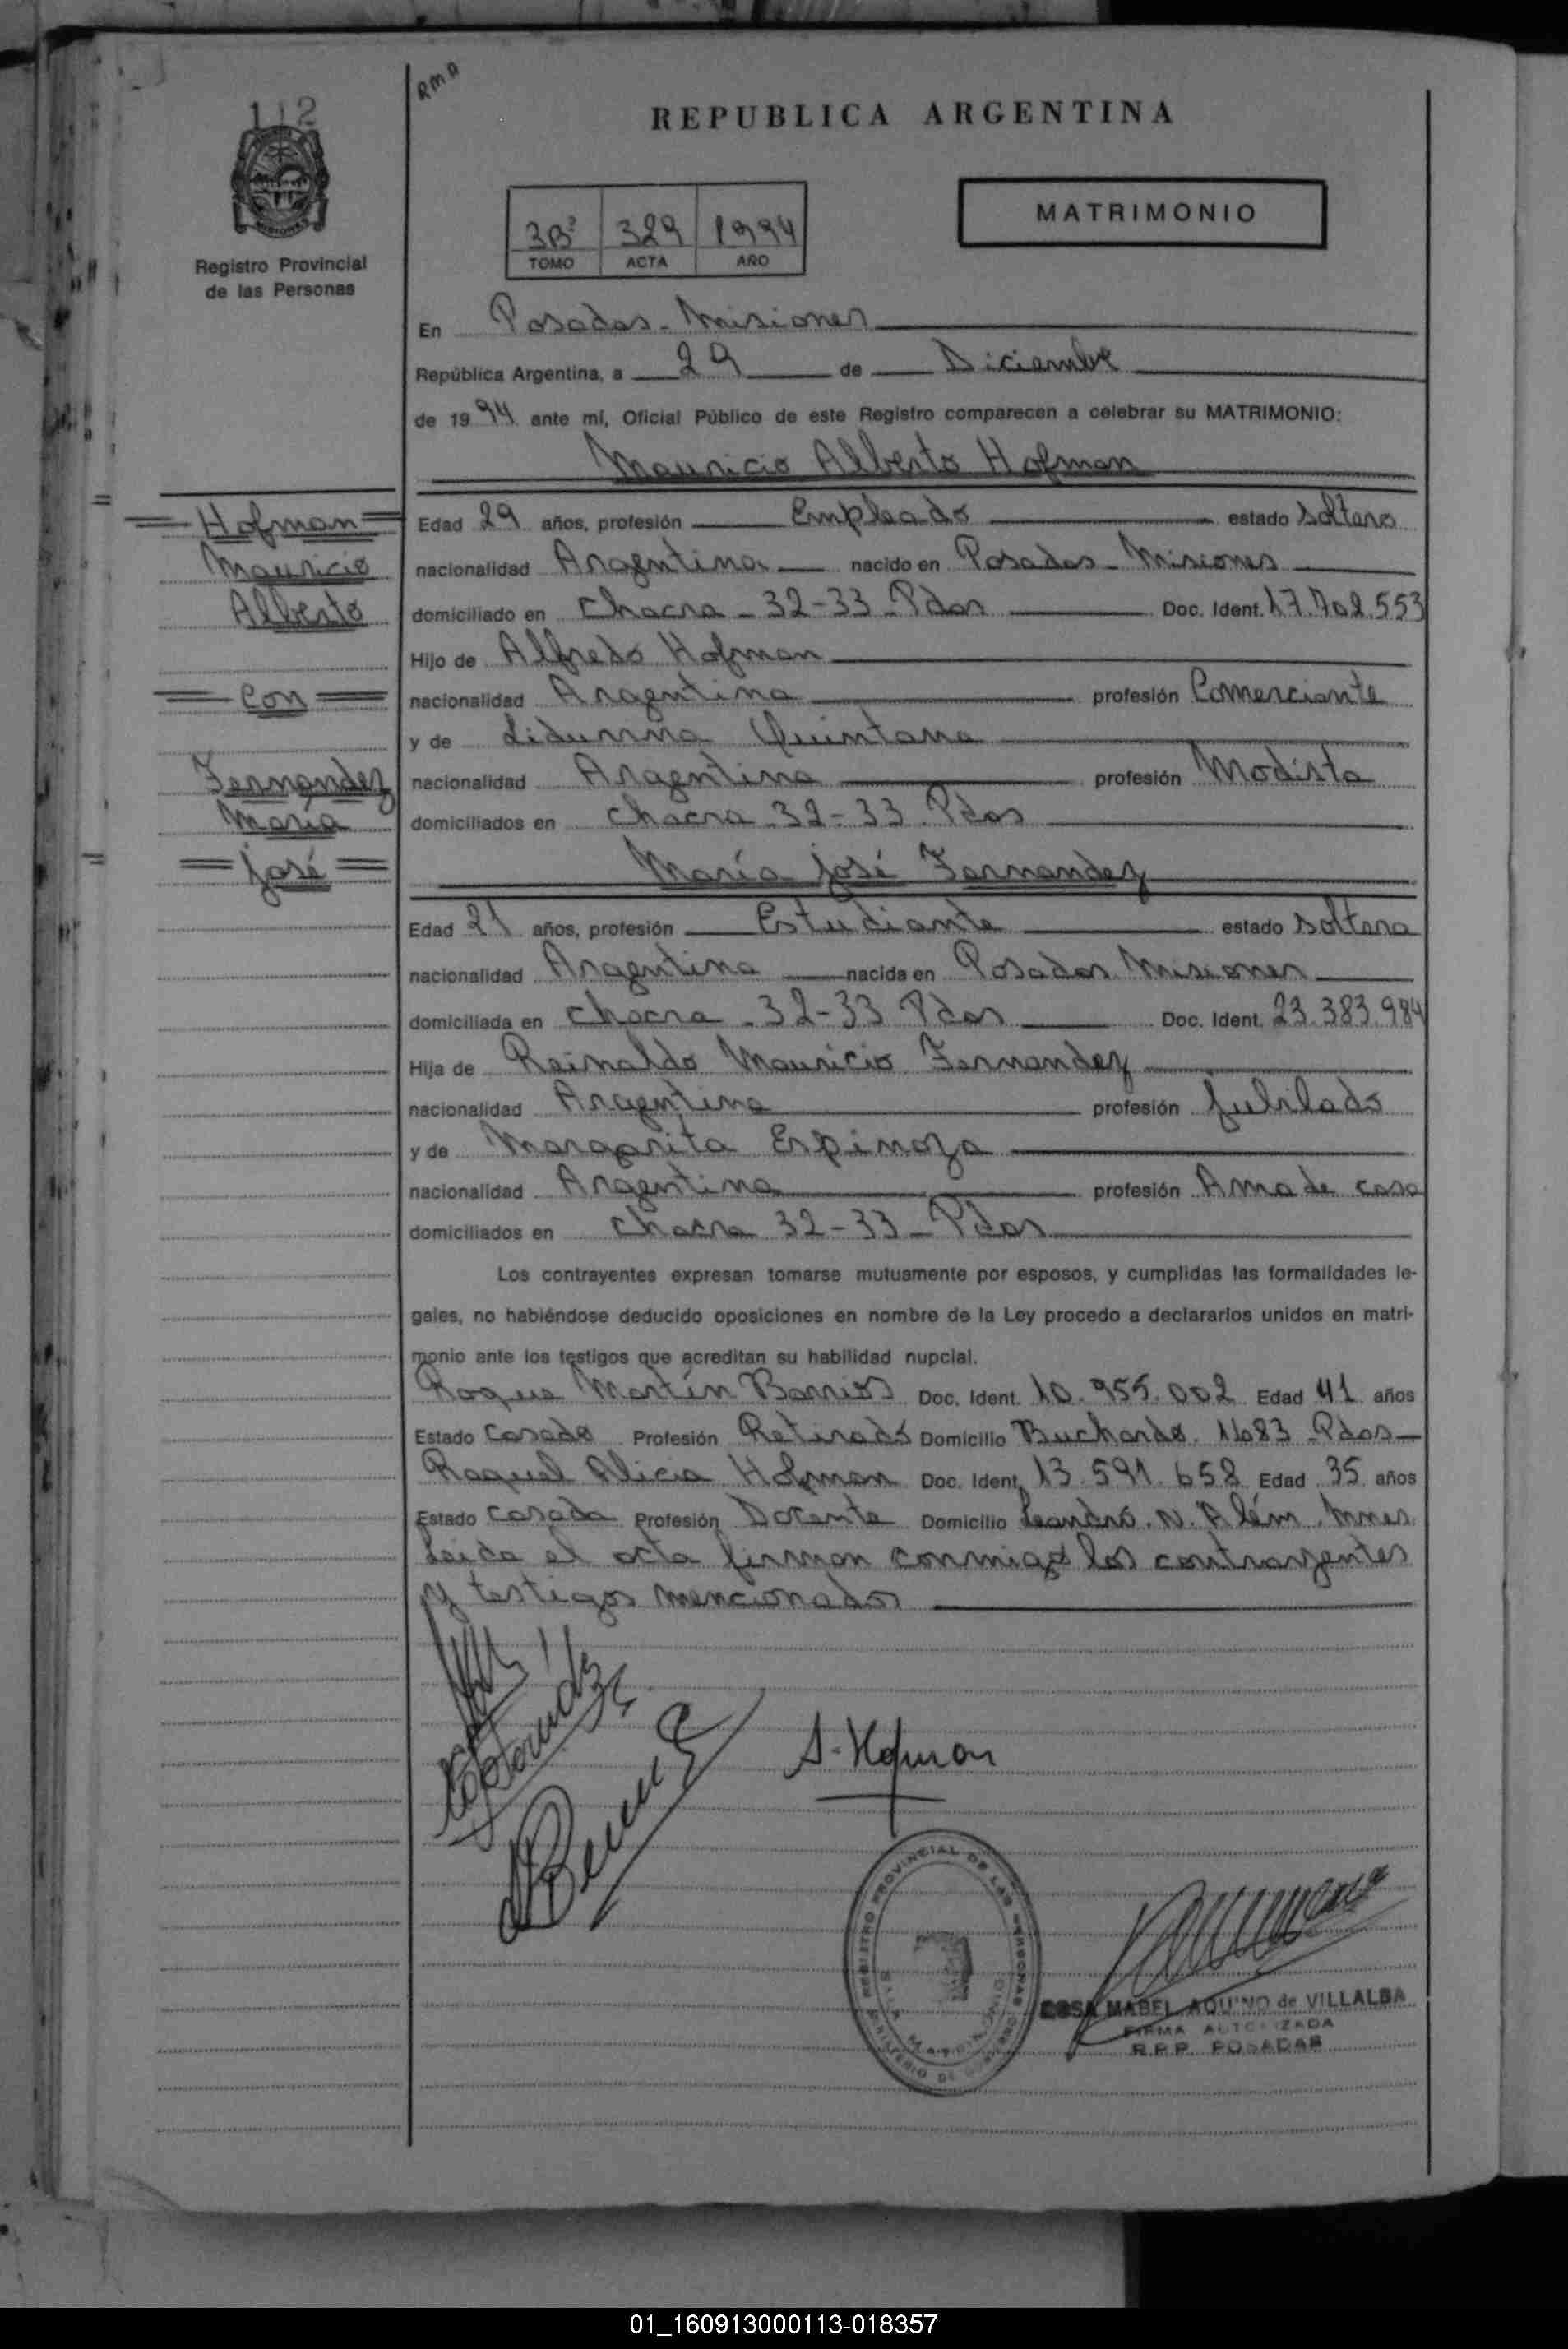 112
RMA
REPUBLICA ARGENTINA
Registro Provincial
de las Personas
3B² 329 1994
TOMO ACTA AÑO
MATRIMONIO
En Posadas - Misiones
República Argentina, a 29 de Diciembre
de 1994 ante mí, Oficial Público de este Registro comparecen a celebrar su MATRIMONIO:
Mauricio Alberto Hofman
Hofman
Mauricio
Alberto
Con
Fernandez
María
José
Edad 29 años, profesión Empleado estado soltero
nacionalidad Argentina nacido en Posadas - Misiones
domiciliado en Chacra - 32-33 - Pdas Doc. Ident. 17.702.553
Hijo de Alfredo Hofman
nacionalidad Argentina profesión Comerciante
y de Quintana
nacionalidad Argentina profesión Modista
domiciliados en Chacra - 32-33. Pdas
María José Fernandez
Edad 21 años, profesión Estudiante estado soltera
nacionalidad Argentina nacida en Posadas Misiones
domiciliada en Chacra - 32-33 Pdas Doc. Ident. 23.383.984
Hija de Reinaldo Mauricio Fernandez
nacionalidad Argentina profesión Jubilado
y de Margarita Espinoza
nacionalidad Argentina profesión Ama de casa
domiciliados en Chacra 32-33 - Pdas
Los contrayentes expresan tomarse mutuamente por esposos, y cumplidas las formalidades le-
gales, no habiéndose deducido oposiciones en nombre de la Ley procedo a declararlos unidos en matri-
monio ante los testigos que acreditan su habilidad nupcial.
Roque Martín Barrios Doc. Ident. 10.955.002 Edad 41 años
Estado Casado Profesión Retirado Domicilio Buchardo. 1683 - Pdas
Raquel Alicia Hofman Doc. Ident. 13.591.658 Edad 35 años
Estado Casada Profesión Docente Domicilio Leandro. N. Além. Mnes
Leida el acta firman conmigo los contrayentes
y testigos mencionados
A. Hofman
REGISTRO PROVINCIAL DE LAS PERSONAS
ROSA MABEL AQUINO de VILLALBA
FIRMA AUTORIZADA
R.P.P. POSADAS
01_160913000113-018357